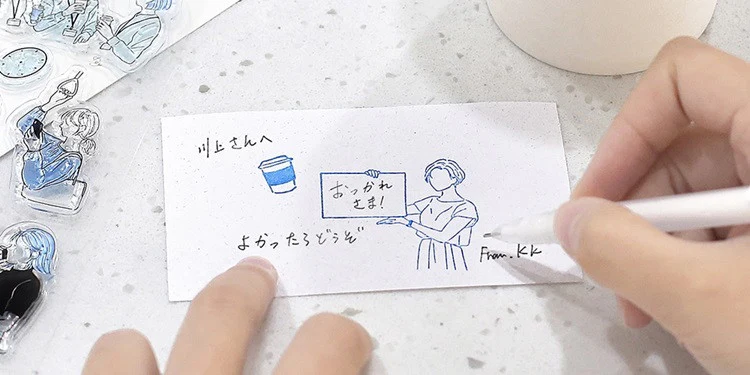 川上さんへ
おつかれ
さま!
よかったらどうぞ
From.KK